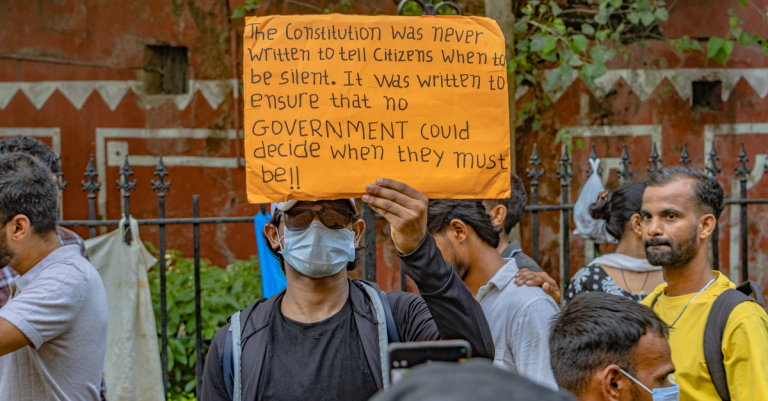 The Constitution was never
written to tell Citizens when to
be silent. It was written to
ensure that no
GOVERNMENT could
decide when they must
be!!